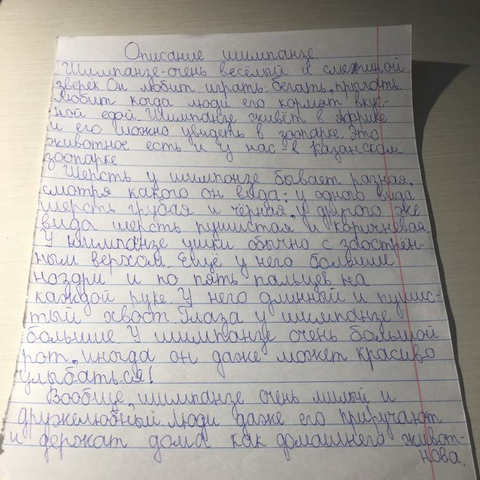 Описание шимпанзе
Шимпанзе-очень весёлый и смешной
зверек. Он любит играть. бегать, прыгать.
Любит когда люди его кормят вкус-
ной едой. Шимпанзе живёт в Африке
и его можно увидеть в зоопарке. Это
животное есть и у нас-в Казанском
зоопарке
Шерсть у шимпонзе бывает разная,
смотря какого он вида: у одного вида
шерсть грубая и чёрная, у другого же
вида шерсть пушистая и коричневая.
У шимпанзе ушки обычно с заострён-
ным верхом. Ещё у него большие
ноздри и по пять пальцев на
каждой руке. У него длинный и пушис-
тый хвост. Глаза у шимпанзе
большие. У шимпанзе очень большой
рот, иногда он даже может красиво
улыбаться!
Вообще, шимпанзе очень милый и
дружелюбный. Люди даже его приручают
и держат дома как домашнего живот-
нова.